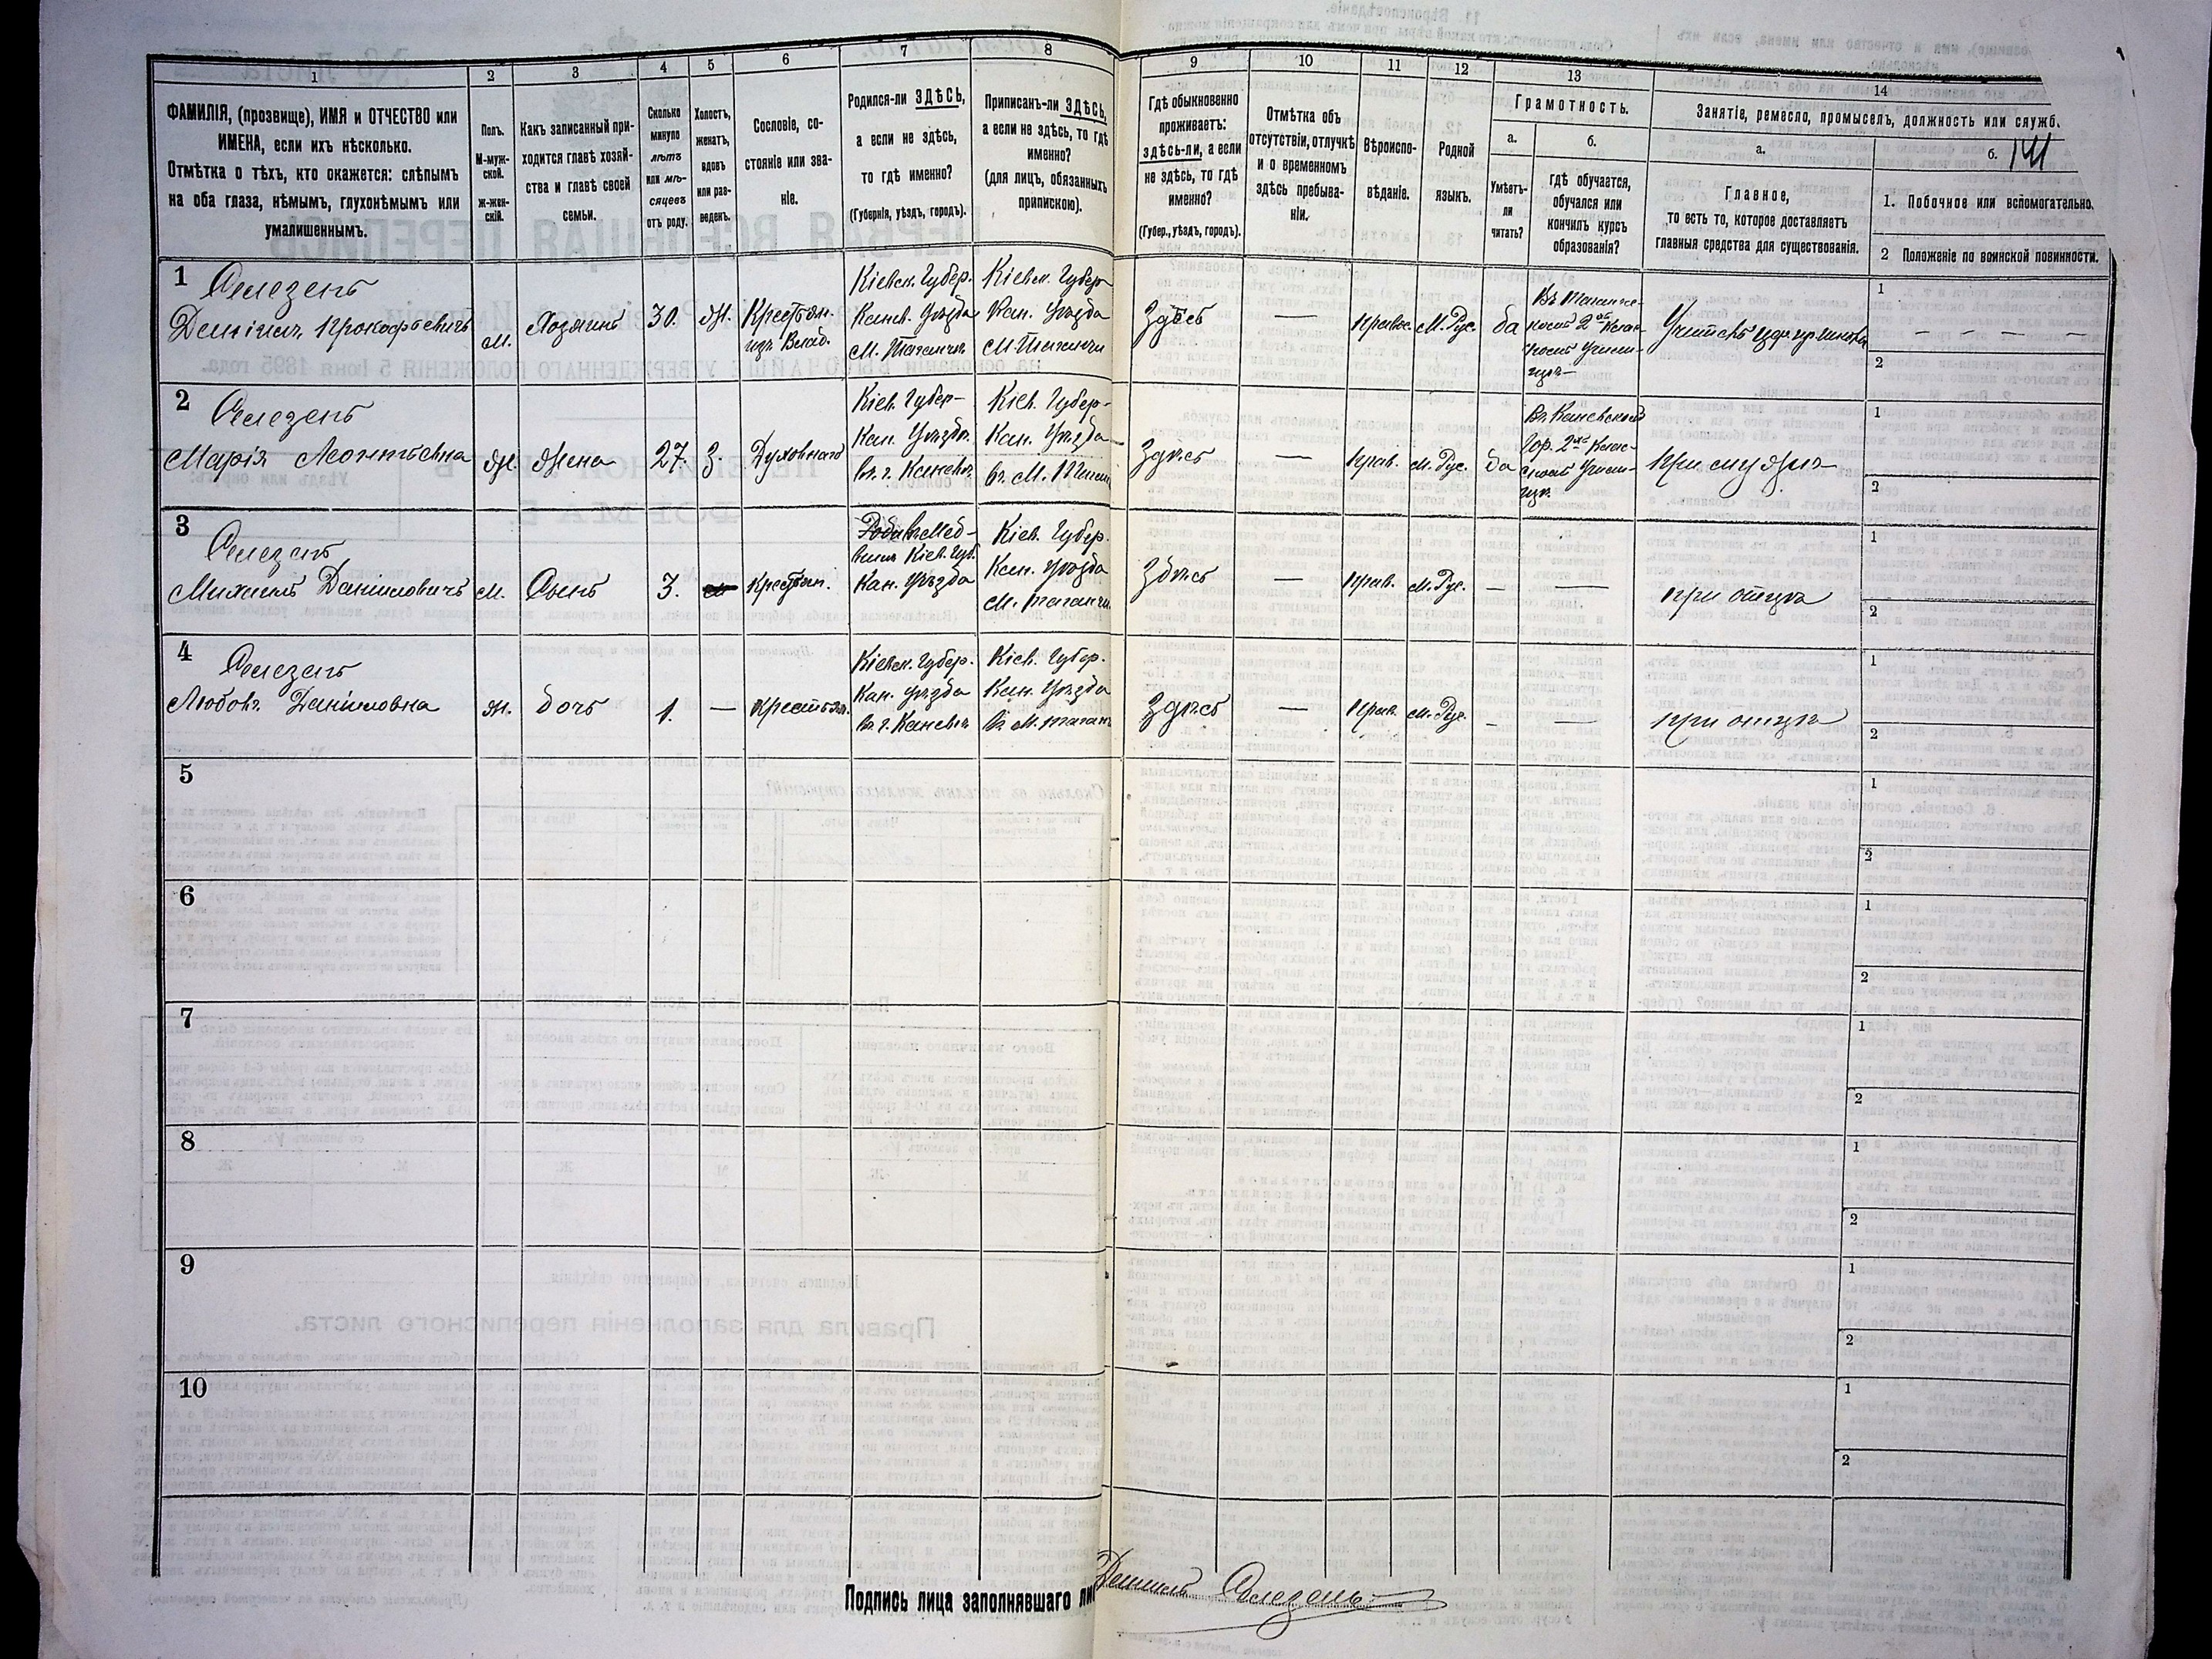 1
ФАМИЛІЯ, (прозвище), ИМЯ и ОТЧЕСТВО или
ИМЕНА, если ихъ нѣсколько.
Отмѣтка о тѣхъ, кто окажется: слѣпымъ
на оба глаза, нѣмымъ, глухонѣмымъ или
умалишеннымъ.
2
Полъ.
М-муж-
ской.
ж-жен-
скій.
3
Какъ записанный при-
ходится главѣ хозяй-
ства и главѣ своей
семьи.
4
Сколько
минуло
лѣтъ
или мѣ-
сяцевъ
отъ роду.
5
Холостъ,
женатъ,
вдовъ
или раз-
веденъ.
6
Сословіе, со-
стояніе или зва-
ніе.
7
Родился-ли ЗДѢСЬ,
а если не здѣсь,
то гдѣ именно?
(Губернія, уѣздъ, городъ).
8
Приписанъ-ли ЗДѢСЬ,
а если не здѣсь, то гдѣ
именно?
(для лицъ, обязанныхъ
припискою).
9
Гдѣ обыкновенно
проживаетъ:
здѣсь-ли, а если
не здѣсь, то гдѣ
именно?
(Губер., уѣздъ, городъ).
10
Отмѣтка объ
отсутствіи, отлучкѣ
и о временномъ
здѣсь пребыва-
ніи.
11
Вѣроиспо-
вѣданіе.
12
Родной
языкъ.
13
Грамотность.
а.
Умѣетъ-
ли
читать?
б.
гдѣ обучается,
обучался или
кончилъ курсъ
образованія?
14
Занятіе, ремесло, промыселъ, должность или служб
а.
Главное,
то есть то, которое доставляетъ
главныя средства для существованія.
б.
141
1. Побочное или вспомогательно
2 Положеніе по воинской повинности.
1
Селезень
Даніилъ Прокофьевичъ
м.
Хозяинъ
30.
Ж.
Крестьян.
изъ Влад.
Кіевск. Губер.
Канев. Уѣзда
М. Таганчи
Кіевск. Губер
Кан. Уѣзда
М Таганчи
Здѣсь
—
Правос.
М. Рус.
да
Учитель цер. пр. школы
1
2
2
Селезень
Марія Леонтьевна
ж.
Жена
27.
З.
Духовнаго
Кіев. Губер-
Кан. Уѣзда
въ г. Каневѣ
Кіев. Губер-
Кан. Уѣзда
въ М. Таган
Здѣсь
—
Прав.
м. Рус.
да
Въ Каневском
Гор. 2хъ Клас-
сномъ Учили-
щѣ.
При мужѣ
1
2
3
Селезень
Михаилъ Даниловичъ
м.
Сынъ
3.
Крестьян.
Кан. Уѣзда
Кіев. Губер.
Кан. Уѣзда
М. Таганчи
Здѣсь
—
Прав.
м. Рус.
—
—
при отцѣ
1
2
4
Селезень
Любовь Даниловна
ж.
дочь
1.
—
Крестьян.
Кіевск. Губер.
Кан. Уѣзда
въ г. Каневѣ
Кіев. Губер.
Кан. Уѣзда
въ М. Таган
Здѣсь
—
Прав.
м. Рус.
—
—
при отцѣ
1
2
5
1
2
6
1
2
7
1
2
8
1
2
9
1
2
10
1
2
Подпись лица заполнявшаго ли
Даниилъ Селезень